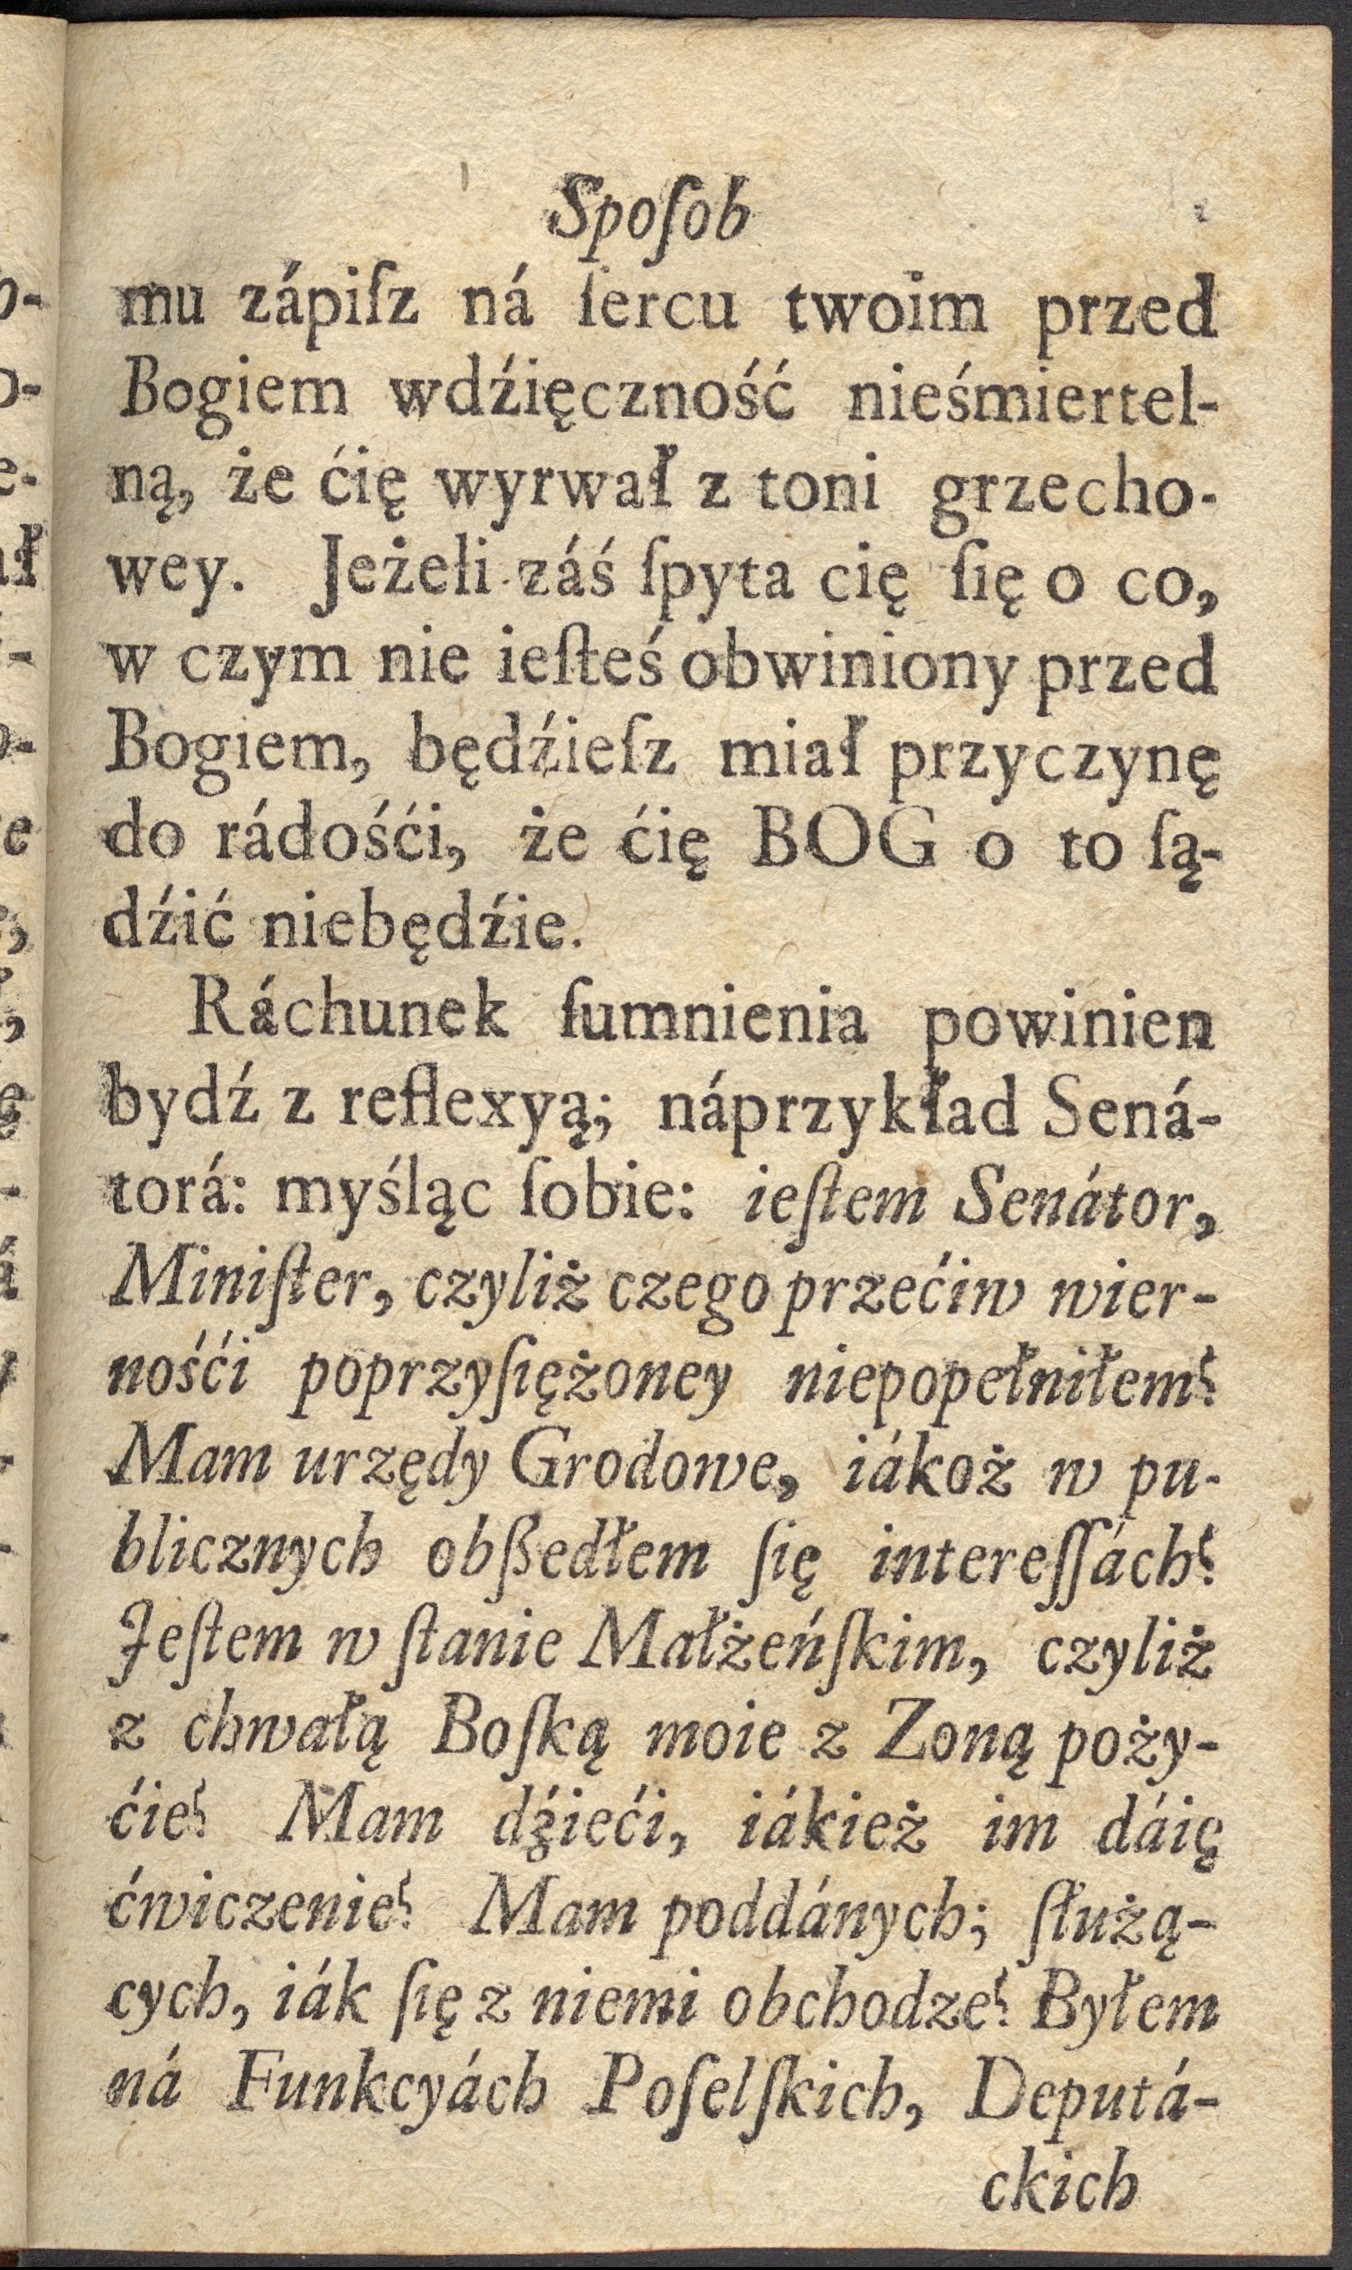 Spoſob
mu zápiſz ná ſercu twoim przed
Bogiem wdźięczność nieśmiertel-
ną, że ćię wyrwał z toni grzecho-
wey. Jeżeli záś ſpyta cię ſię o co,
w czym nie ieſteś obwiniony przed
Bogiem, będźieſz miał przyczynę
do rádośći, że ćię BOG o to ſą-
dźić niebędźie.
Ráchunek ſumnienia powinien
bydź z reflexyą; náprzykład Sená-
torá: myśląc ſobie: ieſtem Senátor,
Miniſter, czyliż czego przećiw wier-
nośći poprzyſiężoney niepopełniłem?
Mam urzędy Grodowe, iákoż w pu-
blicznych obßedłem ſię intereſſách?
Jeſtem w ſtanie Małżeńſkim, czyliż
z chwałą Boſką moie z Zoną poży-
ćie? Mam dźieći, iákież im dáię
ćwiczenie? Mam poddánych; ſłużą-
cych, iák ſię z niemi obchodze? Byłem
ná Funkcyách Poſelſkich, Deputá-
ckich